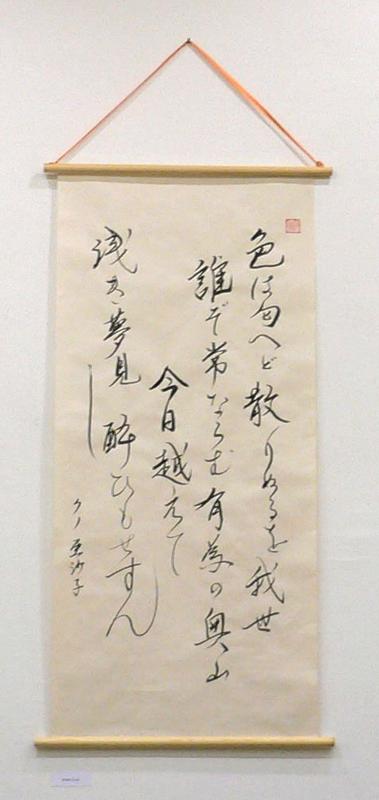 色は匂へど散りぬるを我世
誰ぞ常ならむ有為の奥山
今日越えて
浅き夢見し酔ひもせすん
クノ亜沙子